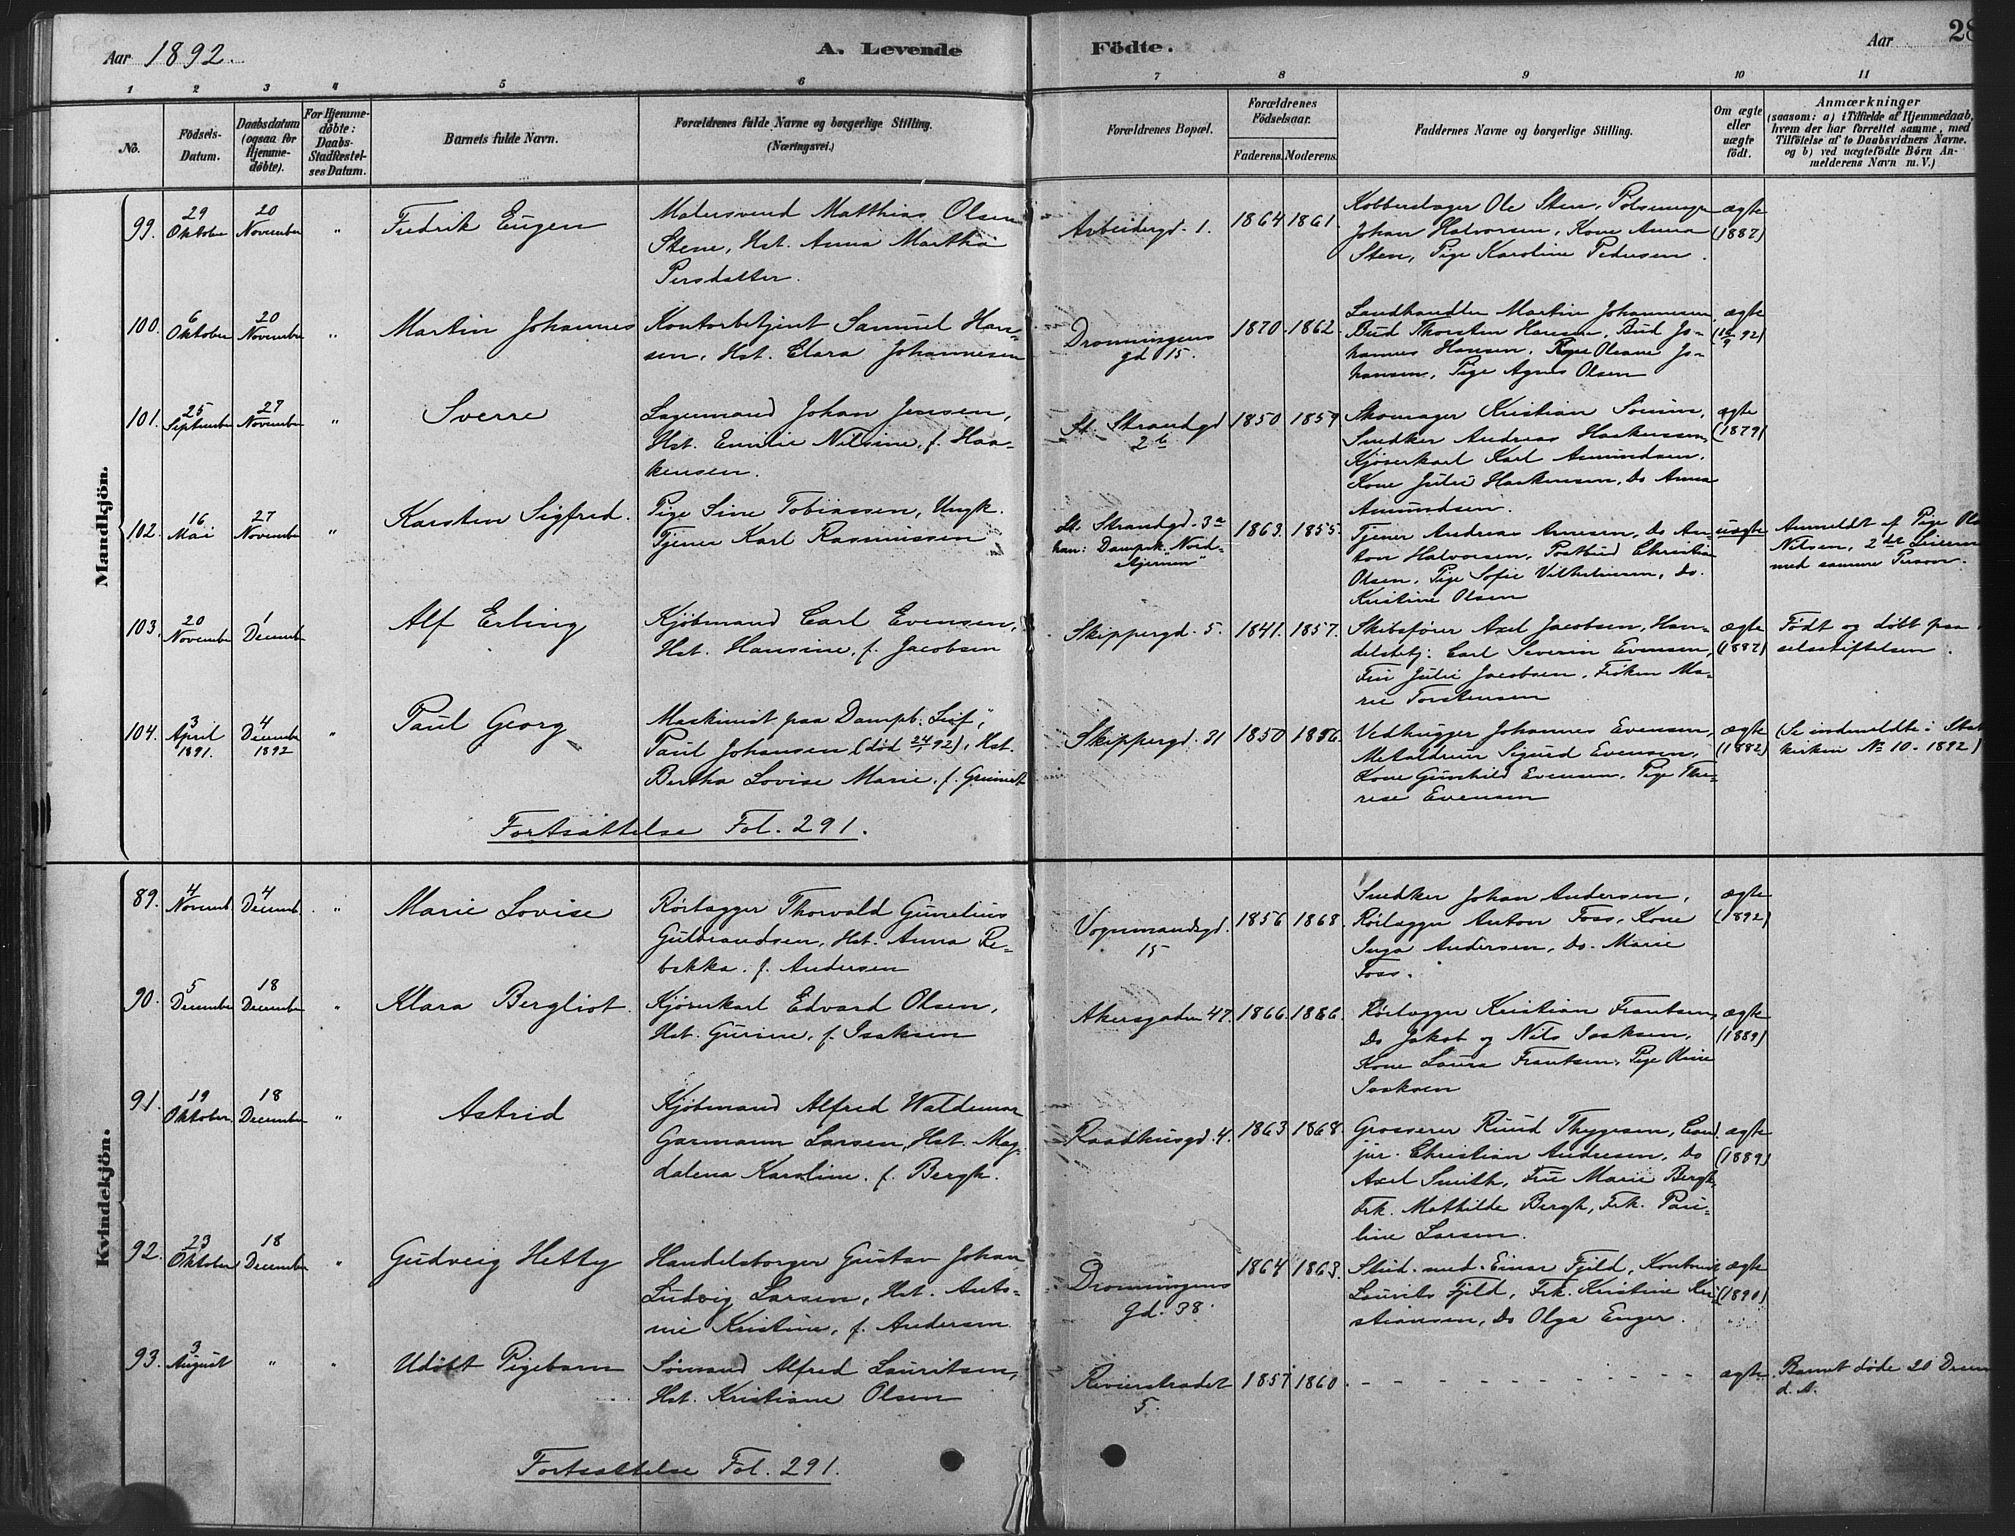 Aar 1892.
A. Levende Födte.
Aar
28
1 2 3 4 5 6 7 8 9 10 11
No.
Födsels-Datum.
Daabsdatum (ogsaa for Hjemme-döbte).
For Hjemme-döbte: Daabs-Stadfæstel-ses Datum.
Barnets fulde Navn.
Forældrenes fulde Navne og borgerlige Stilling. (Næringsvei.)
Forældrenes Bopæl.
Forældrenes Födselsaar.
Faderens. Moderens.
Faddernes Navne og borgerlige Stilling.
Om ægte eller uægte födt.
Anmærkninger
(saasom: a) i Tilfælde af Hjemmedaab,
hvem der har forrettet samme, med
Tilföielse af to Daabsvidners Navne.
og b) ved uægtefödte Børn An-
melderens Navn m. V.)
Mandkjön.
99. 29 Oktober 20 November " Fredrik Eugen
Malersvend Matthias Olsen
Stene, Hst. Anna Martha
Persdatter.
Arbeidergd. 1. 1864 1861.
Kobberslager Ole Sten,
Johan Halvorsen, Kone Anna
Sten, Pige Karoline Pedersen.
ægte (1887)
100. 6 Oktober 20 November " Martin Johannes
Kontorbetjent Samuel Han-
sen, Hst. Clara Johannesen
Dronningens gd 15. 1870 1862.
Landhandler Martin Johannesen,
Bud Thorsten Hansen, Bud Jo-
hannes Hansen, Pige Oleane Jo-
hansen, Pige Agnes Olsen
ægte
101. 25 September 27 November " Sverre
Lagermand Johan Jensen,
Hst. Emilie Nilsine, f. Haa-
kensen.
St. Strandgd 2b 1850 1859
Skomager Kristian
Snedker Andreas Haakensen,
Kjørerkarl Karl Amundsen,
Kone Julie Haakensen, Do Anna
Amundsen.
ægte (1879)
102. 16 Mai 27 November " Karsten Sigfred.
Pige Sine Tobiassen, Ungk.
Tjener Karl Rasmussen
St. Strandgd. 3a
han: Dampsk. "Nord-
stjernen" 1863. 1855.
Tjener Andreas Arnesen, Do An-
ton Halvorsen, Postbud Christian
Olsen, Pige Sofie Vilhelmsen, do.
Kristine Olsen
uægte
Anmeldt af Pige
Nilsen, 2det Leierm
med samme Person.
103. 20 November 1 Decemb Alf Erling
Kjöbmand Carl Evensen,
Hst. Hansine, f. Jacobsen
Skippergd. 5. 1841. 1857.
Skibsfører Axel Jacobsen, Han-
delsbetj: Carl Severin Evensen,
Fru Julie Jacobsen, Frøken Ma-
rie Torstensen
ægte (1882)
Födt og döbt paa
selsstiftelsen.
104. 3 April 1891. 4 Decemb 1892 " Paul Georg
Maskinist paa Dampb. "Leif",
Paul Johansen (död 24/7 92), Hst.
Bertha Lovise Marie, f.
Skippergd. 31 1850 1856.
Vedhugger Johannes Evensen,
Metaldreier Sigurd Evensen,
Kone Gunhild Evensen, Pige The-
rese Evensen
ægte (1882)
(Se indmeldte i Stats
kirken No 10. 1892)
Fortsættelse Fol. 291.
Kvindekjön.
89. 4 Novemb. 4 Decemb. " Marie Lovise
Rörlægger Thorvald Gunelius
Gulbrandsen, Hst. Anna Re-
bekka. f. Andersen
Vognmandsgd. 15 1856 1868.
Snedker Johan Andersen,
Rörlægger Anton Foss, Kone
Inga Andersen, Do. Marie
Foss.
ægte (1892)
90. 5 December 18 December " Klara Bergliot.
Kjörerkarl Edvard Olsen,
Hst. Gurine, f. Isaksen
Akersgaden 47. 1866. 1866.
Rörlægger Kristian Frantsen,
Do Jakob og Nils Isaksen,
Kone Laura Frantsen, Pige Oline
Isaksen
ægte (1889)
91. 19 Oktober. 18 December " Astrid
Kjöbmand Alfred Waldemar
Garmann Larsen, Hst. Mag-
dalena Karoline, f. Bergh.
Raadhusgd. 4. 1863 1868.
Grosserer Ruud Thygesen, Cand.
jur. Christian Andersen, Do
Axel Smith, Fru Marie Bergh,
Frk. Mathilde Bergh, Frk. Pau-
line Larsen.
ægte (1889)
92. 23 Oktober 18 December " Gudveig Hetty
Handelsborger Gustav Johan
Ludvig Larsen, Hst. Anto-
nie Kristine, f. Andersen
Dronningens Gd. 38. 1864 1863.
Stud. med. Einar Fjeld, Kontorist
Laurits Fjeld, Frk. Kristine Kri-
stiansen, Do Olga Enger.
ægte (1890)
93. 3 August " " Udöbt Pigebarn
Sömand Alfred Lauritsen,
Hst. Kristiane Olsen
Revierstrædet 5. 1857 1860
ægte
Barnet döde 20 Decem
d. A.
Fortsættelse Fol. 291.